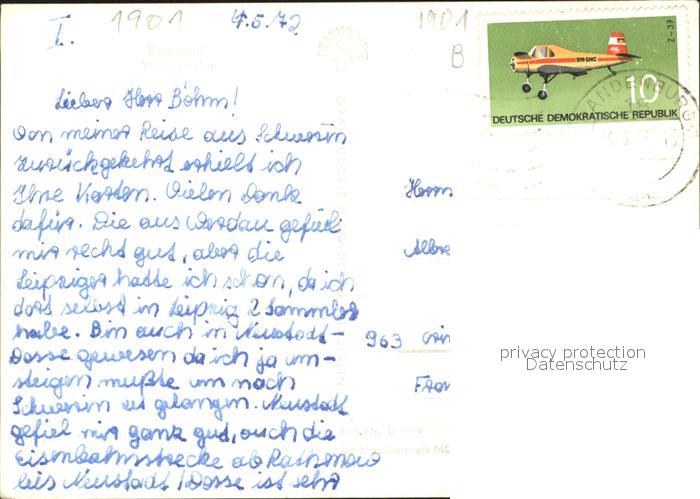 I. 1901 4.5.72 1901
B
Z-37
DM-SMC
10
DEUTSCHE DEMOKRATISCHE REPUBLIK
BRANDENBURG
Lieber Herr Böhm!
Von meiner Reise aus Schwerin
zurückgekehrt erhielt ich
Ihre Karten. Vielen Dank
dafür. Die aus Werdau gefiel
mir recht gut, aber die
Leipziger hatte ich schon, da ich
dort selbst in Leipzig 2 Sammler
habe. Bin auch in Neustadt-
Dosse gewesen da ich ja um-
steigen mußte um nach
Schwerin zu gelangen. Neustadt
gefiel mir ganz gut, auch die
Eisenbahnstrecke ab Rathenow
bis Neustadt/Dosse ist sehr
Herrn
963
privacy protection
Datenschutz